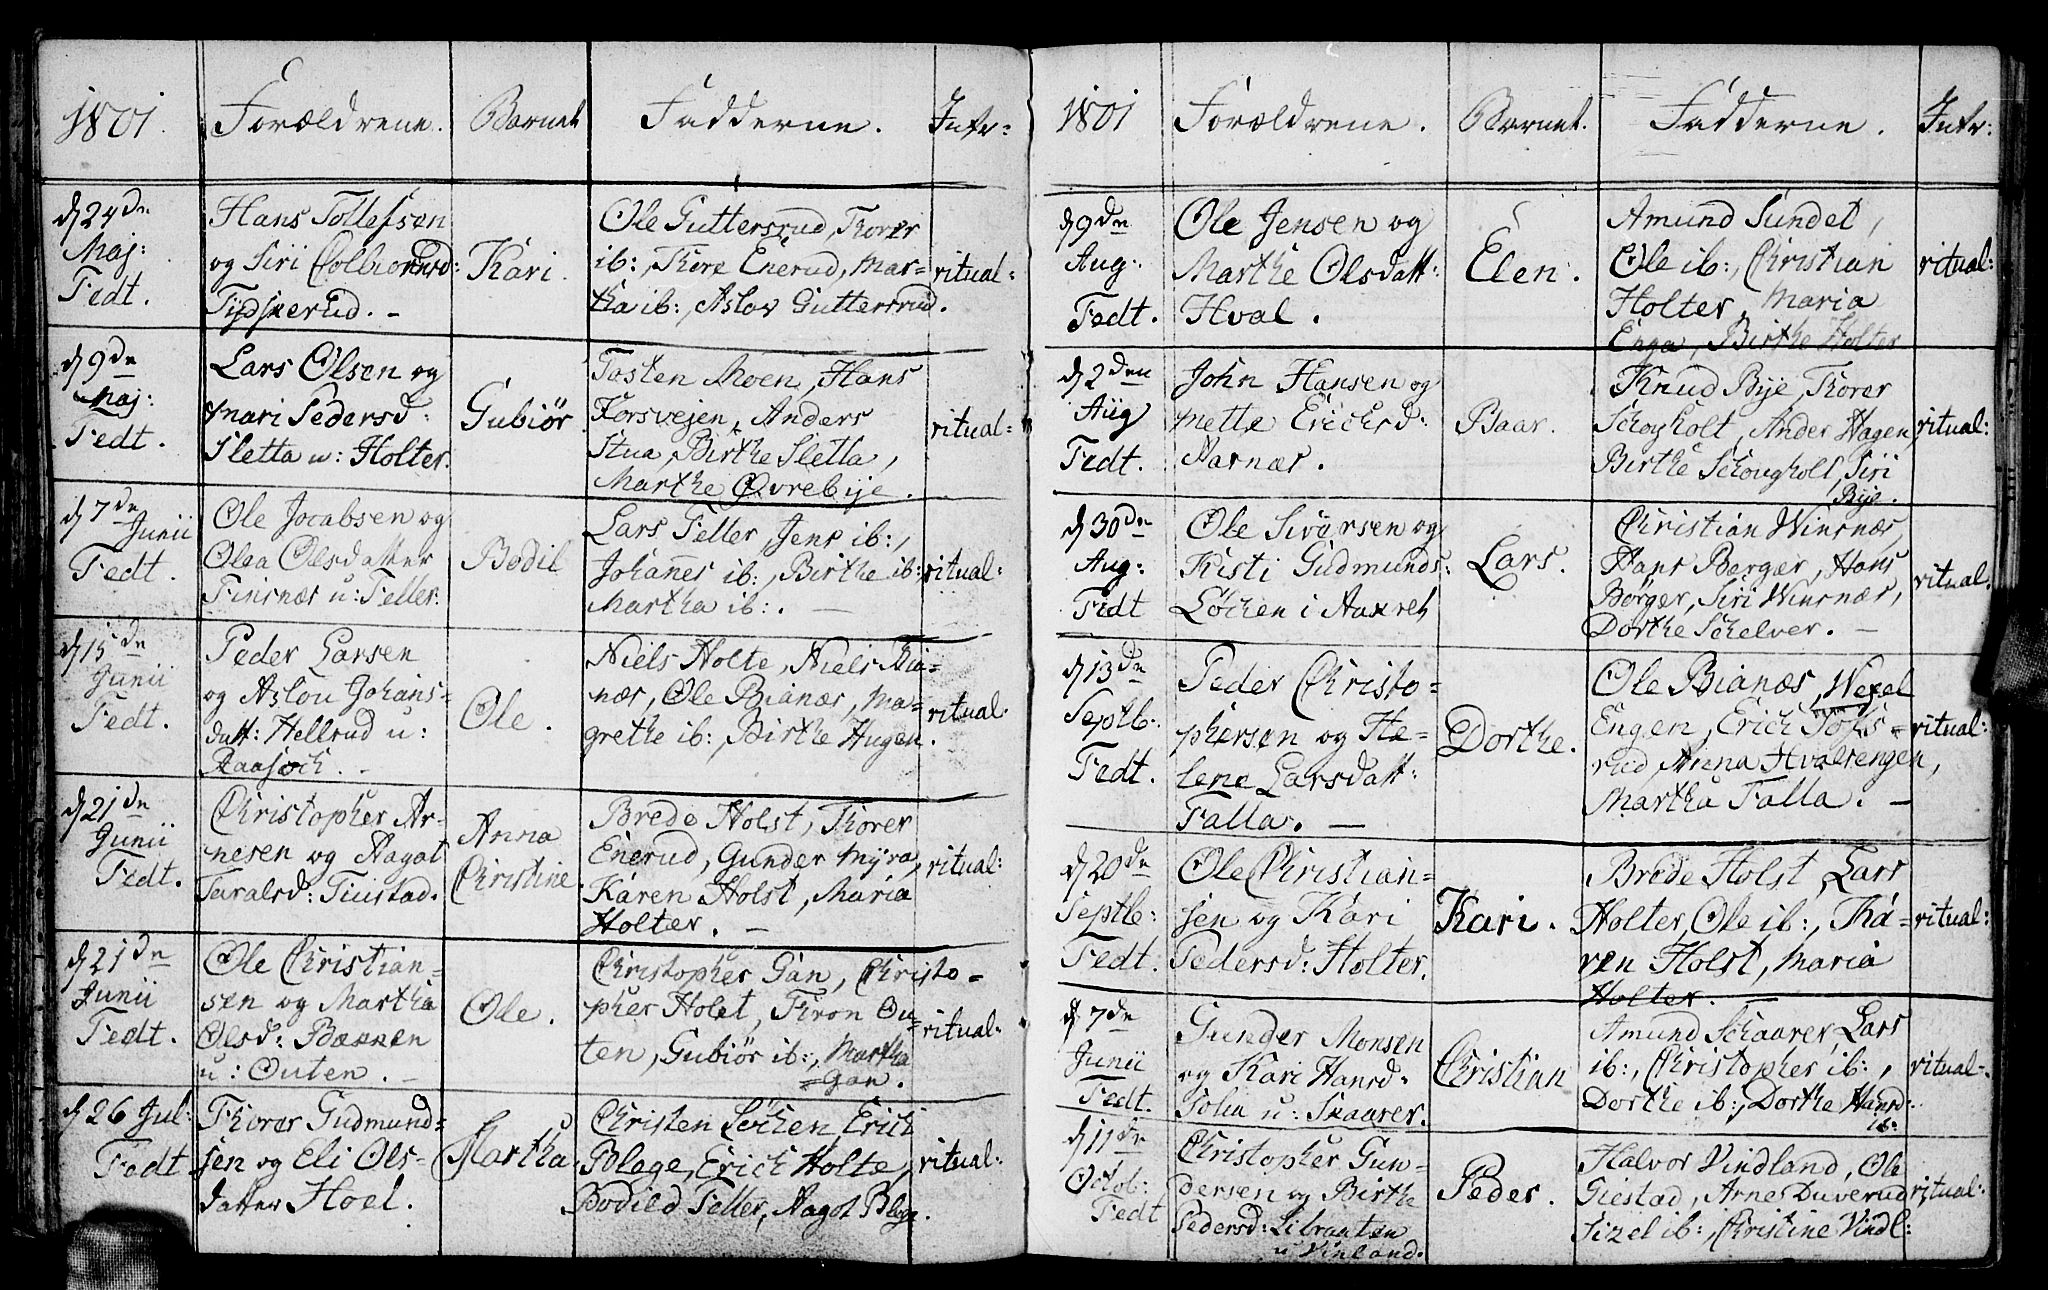 1801. Forældrene. Barnet Fadderne. Intr:
d 24de
Maj:
Fedt.
Hans Tollefsen
og Siri Colbiørnsd:
Tydskerud. -
Kari.
Ole Guttersrud, Thorer
ib:, Thore Enerud, Mar-
tha ib:, Aslov Guttersrud.
ritual:
d 9de
Maj:
Fedt.
Lars Olsen og
Mari Pedersd:
Sletta u: Holter.
Gubiør
Tosten Moen, Hans
Korsvejen, Anders
Stua, Birthe Sletta,
Marthe Øvrebye.
ritual:
d 7de
Junii
Fedt.
Ole Jocabsen og
Olea Olsdatter
Finsnæs u: Feller.
Bodil
Lars Feller, Jens ib:,
Johannes ib:, Birthe ib:
Martha ib:. —
ritual:
d 15de
Junii
Fedt.
Peder Larsen
og Aslou Johans-
datt: Hellrud u:
Raasjoch. -
Ole.
Niels Holte, Niels Bia-
nær, Ole Bianær, Ma-
grethe ib:, Birthe Hugen.
ritual:
d 21de
Junii
Fedt.
Christopher Ar-
nesen og Aagot
Taralsd: Tiustad.
Anna
Christine
Brede Holst, Thorer
Enerud, Gunder Myra,
Karen Holst, Maria
Holter. —
ritual:
d 21de
Junii
Fedt.
Ole Christian-
sen og Martha
Olsd: Bakken
u: Outen. -
Ole.
Christopher Gan, Christo-
pher Holst, Tiron Ou-
ten, Gubiør ib:, Martha
Gan.
ritual:
d 26 Jul:
Fedt
Thorer Gudmund-
sen og Eli Ols-
datter Hoel.
Martha.
Christen Løchen, Erich
Blege, Erich Holte,
Bodild Feller, Aagot Blege.
ritual:
1801 Forældrene. Barnet. Fadderne. Intr:
d 9de
Aug:
Fedt.
Ole Jensen og
Marthe Olsdatt:
Hval.
Elen.
Amund Sundet,
Ole ib:, Christian
Holter, Maria
Enga, Birthe Holter
ritual:
d 2den
Aug
Fedt.
John Hansen og
Mette Erichsd:
Aarnæs.
Baar.
Knud Bye, Thorer
Schougholt, Ander Hagen,
Birthe Schougholt, Siri
Bye.
ritual:
d 30de
Aug:
Fedt
Ole Siversen og
Kisti Gudmunds:
Løchen i Aaxreh
Lars.
Christian Winsnær,
Hans Berger, Hans
Børger, Siri Winsnær,
Dorthe Schelver. —
ritual:
d 13de
Septb:
Fedt.
Peder Christo-
phersen og He-
lene Larsdatt:
Falla. —
Dorthe.
Ole Bianæs, Wexel
Engen, Erich Tofs-
rud, Anna Hvalsengen,
Martha Falla. —
ritual:
d 20de
Septb:
Fedt.
Ole Christian-
sen og Kari
Pedersd: Holter.
Kari.
Brede Holst, Lars
Holter, Ole ib:, Ka-
ren Holst, Maria
Holter. —
ritual:
d 7de
Junii
Fedt.
Gunder Monsen
og Kari Hansd:
Solia u: Skaarer.
Christian
Amund Schaarer, Lars
ib:, Christopher ib:,
Dorthe ib:, Dorthe Hansd:
ib:
ritual:
d 11de
Octob:
Fedt
Christopher Gun-
dersen og Birthe
Pedersd: Libraaten
u Vinland.
Peder.
Halvor Vindland, Ole
Giestad, Arne Duverud,
Sizel ib:, Christine Vindl:
ritual: